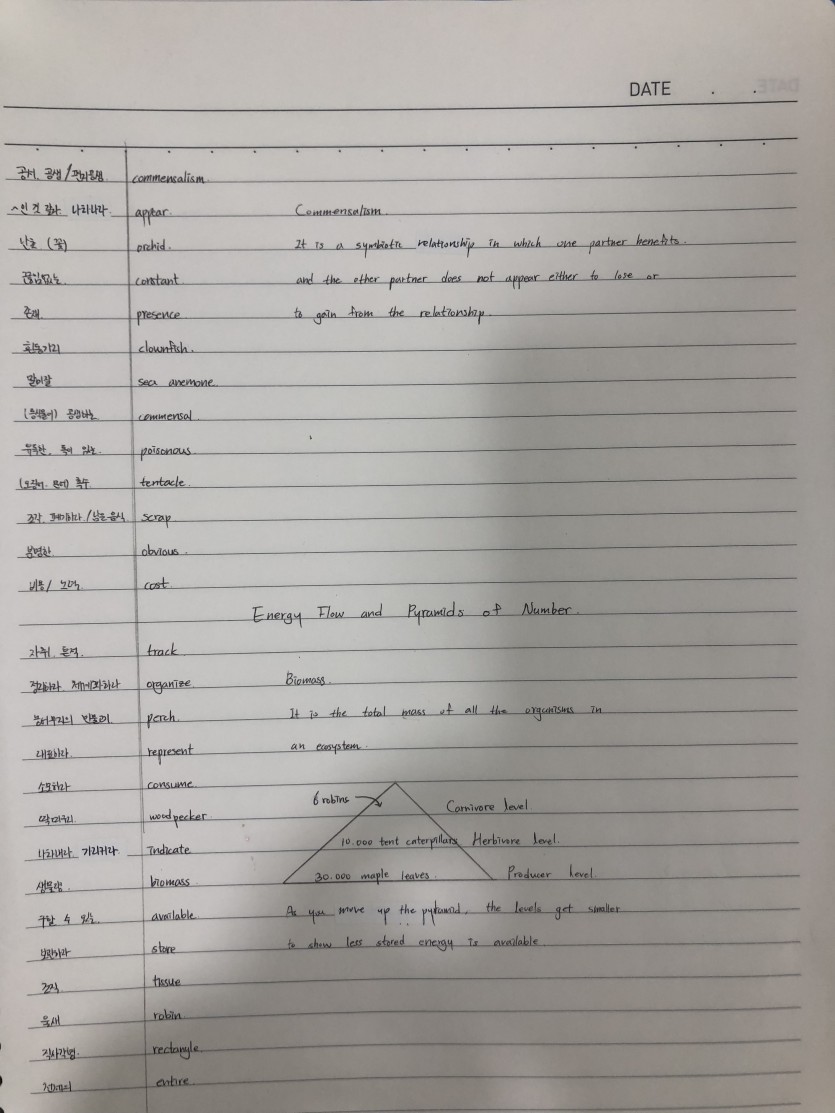 DATE . .
공서, 공생 / 편리공생 commensalism
~인 것 같다 나타나다 appear. Commensalism.
난초 (꽃) orchid. It is a symbiotic relationship in which one partner benefits.
끊임없는 constant and the other partner does not appear either to lose or
존재 presence to gain from the relationship.
흰동가리 clownfish.
말미잘 sea anemone.
공생하는 commensal
유독한, 독이 있는 poisonous
(오징어, 문어) 촉수 tentacle
조각, 폐기하다 / 남은 음식 scrap
분명한 obvious
비용 / 노력 cost
Energy Flow and Pyramids of Number.
자취, track
정리하다, 체계화하다 organize Biomass.
perch. It is the total mass of all the organisms in
대표하다. represent an ecosystem.
소모하다 consume
6 robins Carnivore level
딱따구리 woodpecker
나타내다 가리키다 indicate 10.000 tent caterpillars Herbivore level.
생물량 biomass 30.000 maple leaves. Producer level.
구할 수 있는 available As you move up the pyramid, the levels get smaller
보관하다 store to show less stored energy is available.
조직 tissue
울새 robin.
직사각형. rectangle
전체의 entire